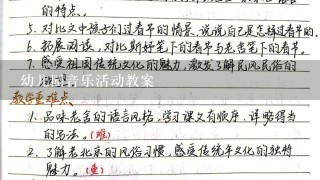 的特点。
5. 对比文中孩子们过春节的情景,说说自己是怎样过春节的。
6. 拓展阅读,对比斯好笔下的春节与老舍笔下的春节。
7. 感受祖国传统文化的魅力,激发了解民风民俗的
幼儿园音乐活动教案
教学重难点
1. 品味老舍的语言风格,学习课文有顺序、详略得当
的写法。(难)
2. 了解老北京的风俗习惯,感受传统年文化的独特
魅力。(重)